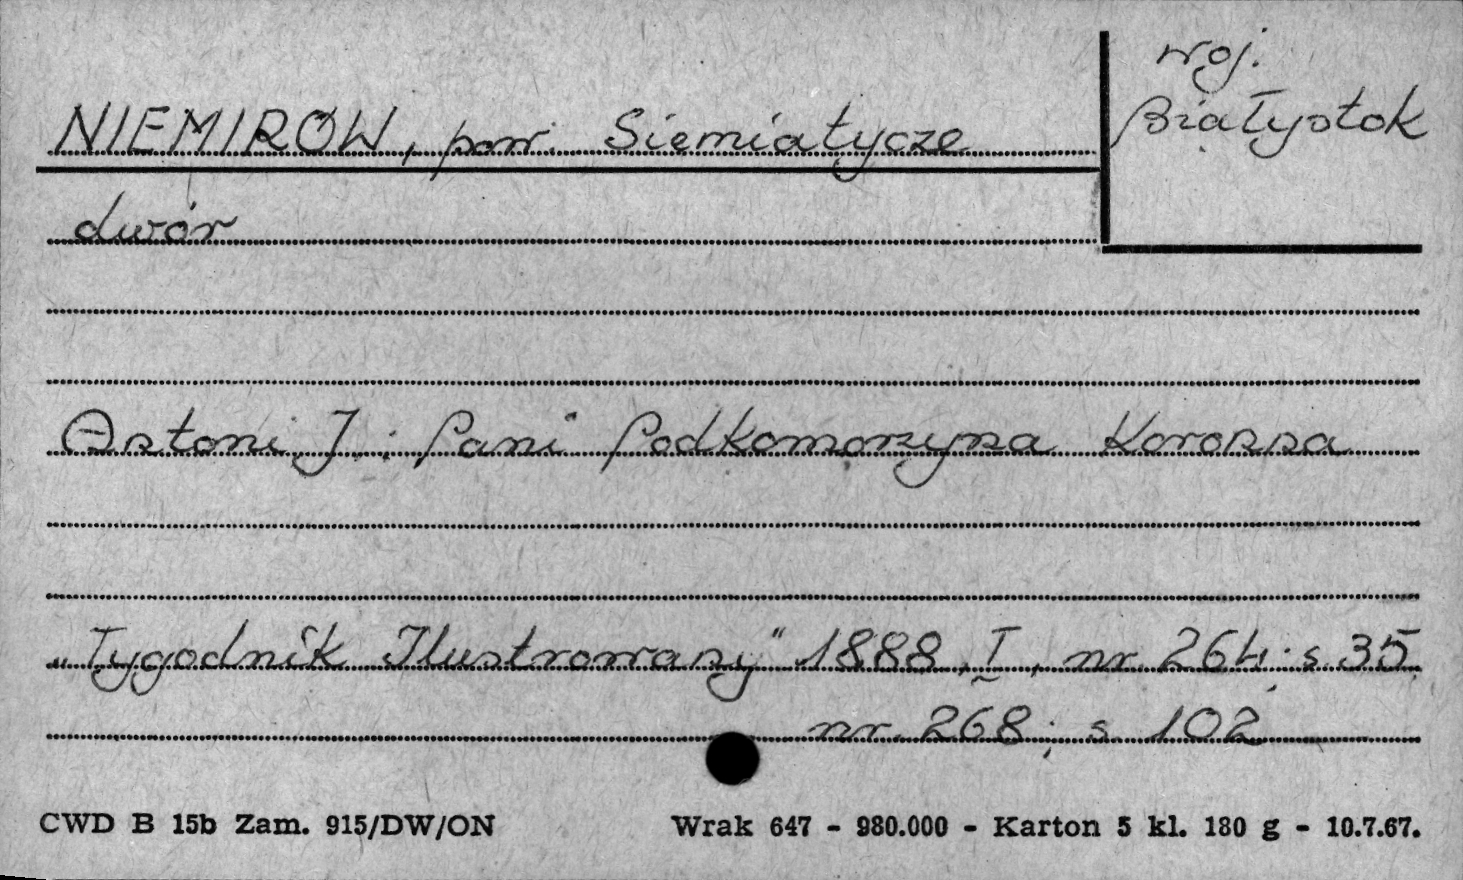 woj.
Białystok
NIEMIRÓW, pow. Siemiatycze
dwór
Antoni J.: Pani Podkomorzyna Koronna
„Tygodnik Ilustrowany" 1888, I, nr 264; s. 35
nr. 268; s. 102
CWD B 15b Zam. 915/DW/ON Wrak 647 - 980.000 - Karton 5 kl. 180 g - 10.7.67.